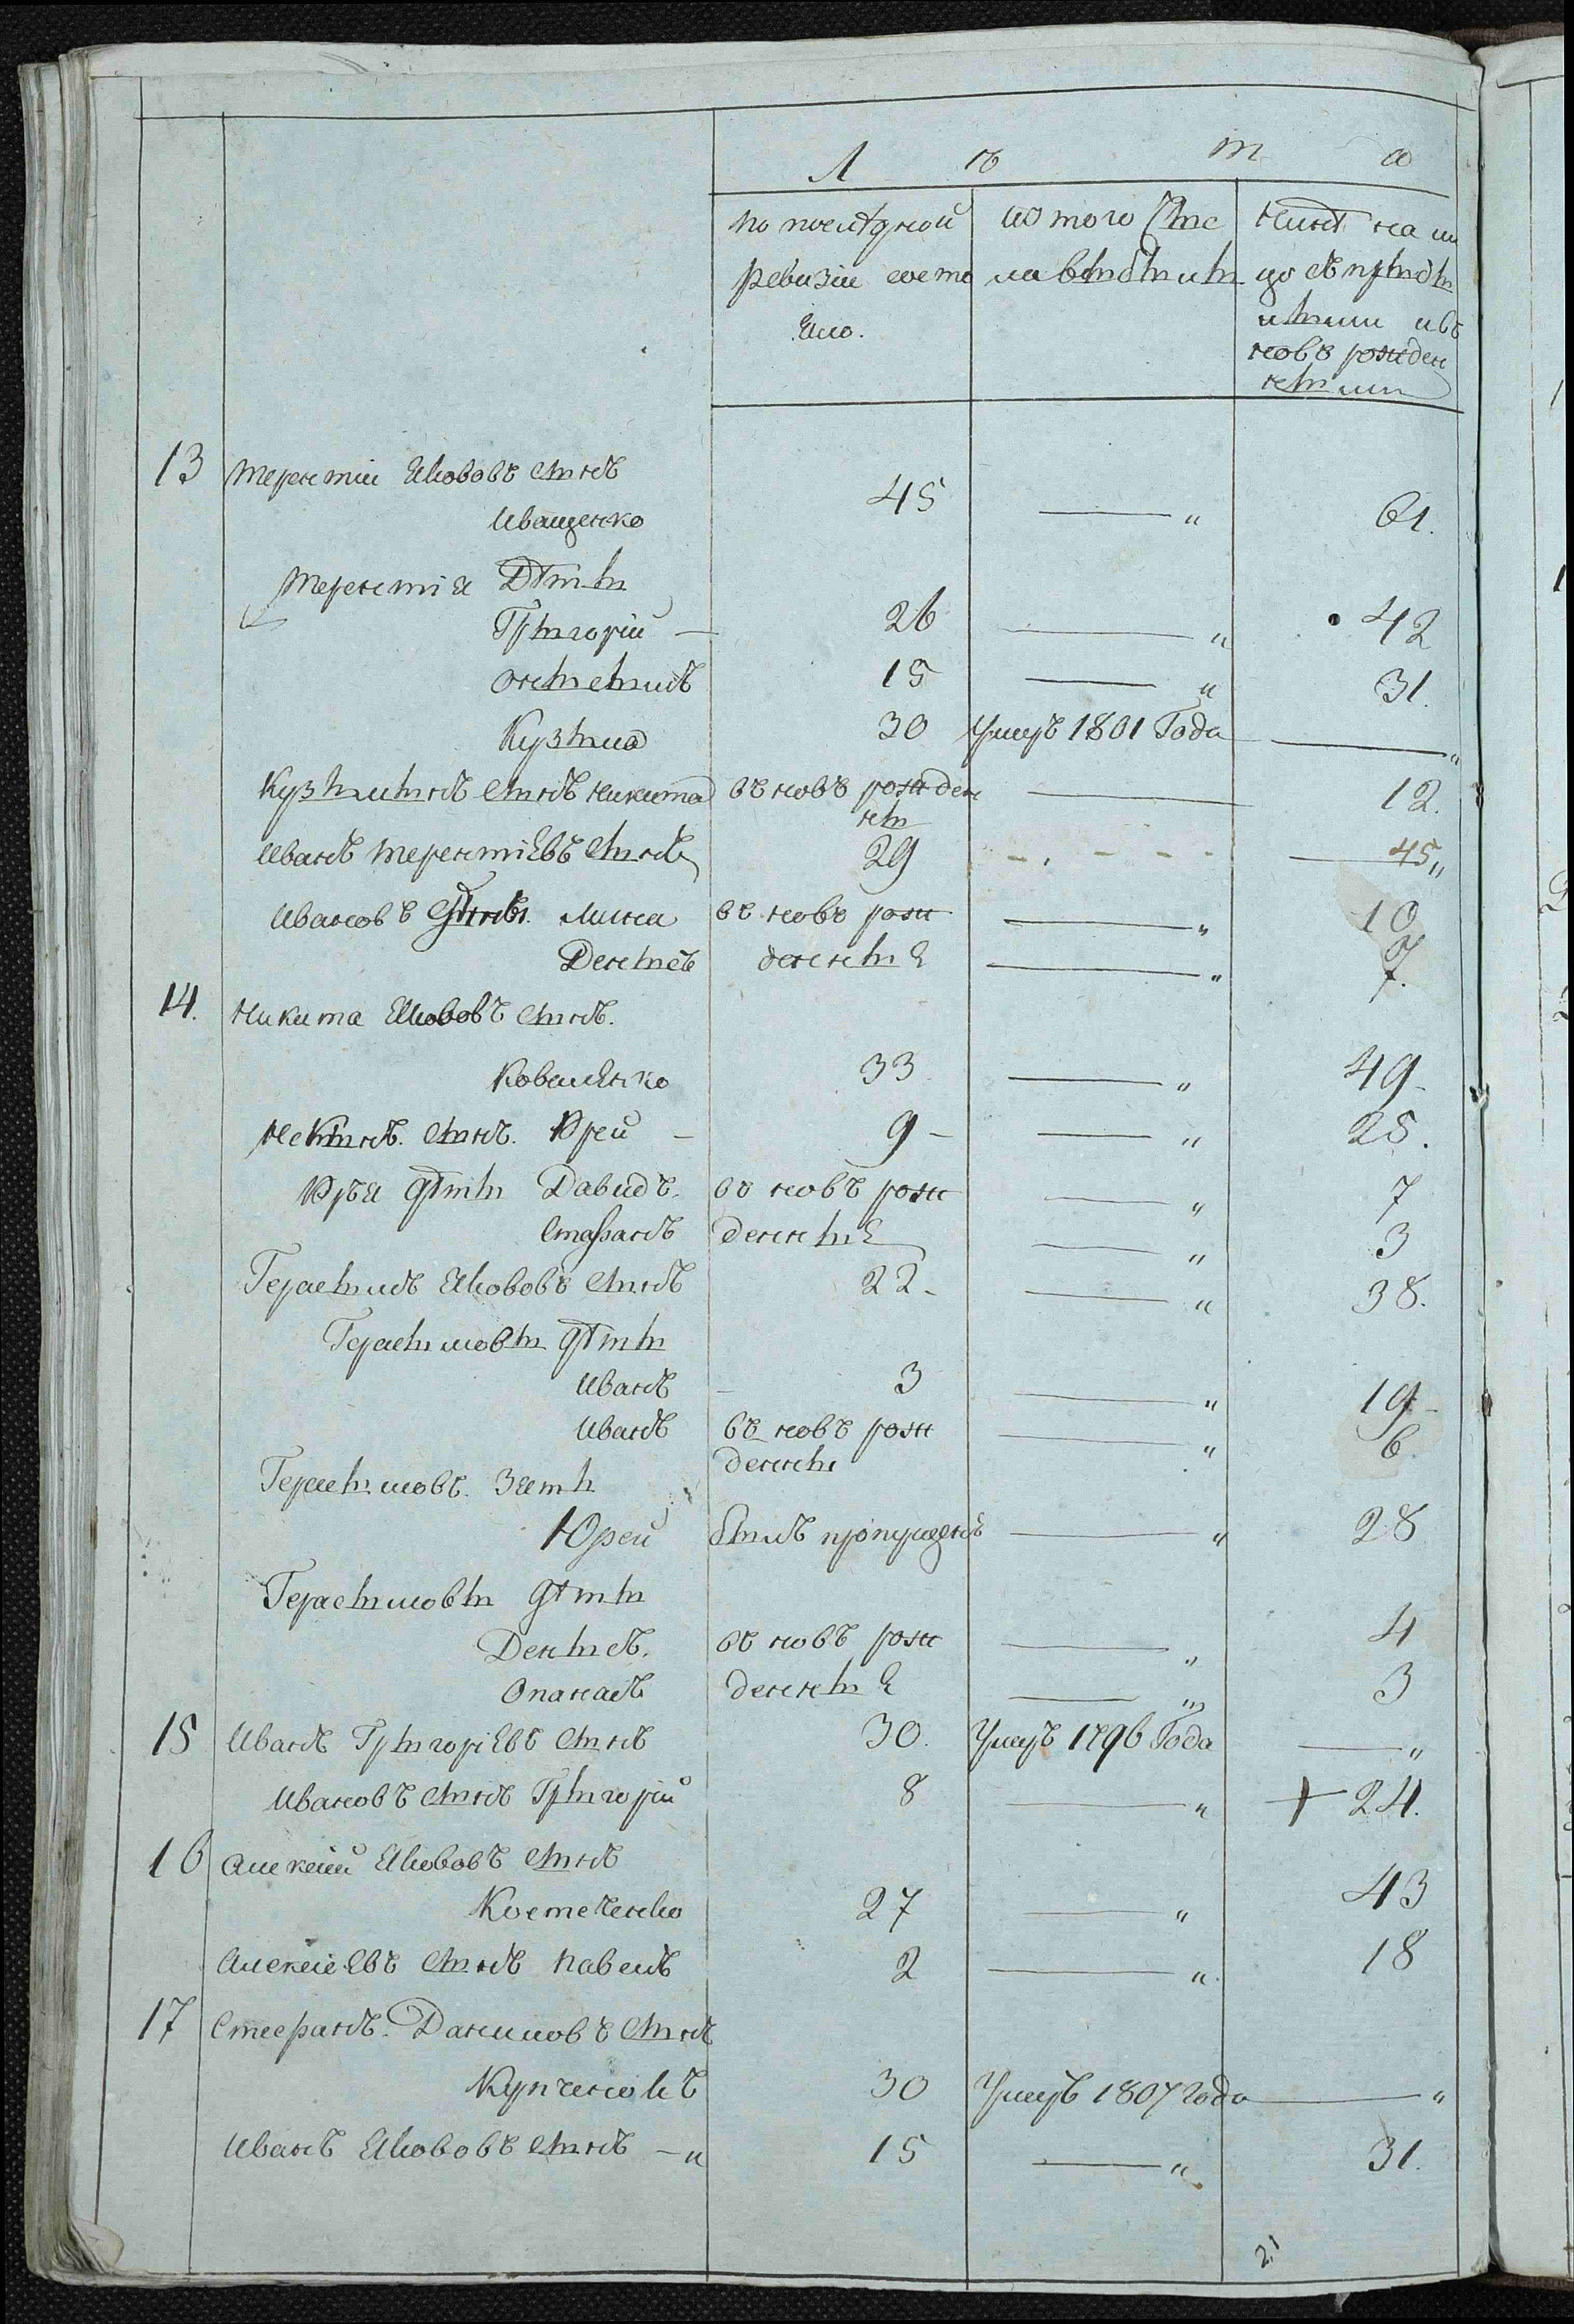 Л ѣ т а
по последней ревизии состояло.
изъ того числа выбыли
нынѣ на лицо съ прибылыми и въ новь рожденными
13 терентии Яковъ сынъ 45 — " 61.
Иващенко
терентiя Дѣти
Григорiй — 26 — " 42
онисимъ 15 — " 31.
Кузма 30 Умеръ 1801 Года — "
Кузминъ сынъ никита въ новь рожден — 12.
ны
Иванъ терентiевъ сынъ 29 - . - - - 45 "
Ивановъ Сыны. Мина въ новь рож — " 10
Денисъ денные — " 7.
14. Никита Яковъ сынъ.
Коваленко 33 — " 49-
Некинъ. сынъ. Юрей — 9 - — " 25.
Юрья дѣти Давидъ. въ новь рож — " 7
Стефанъ денные — " 3
Герасимъ Яковъ сынъ 22 - — " 38.
Герасимовы дѣти
Иванъ - 3 — " 19 -
Иванъ въ новь рож — " 6.
Герасимовъ. Зять денны
Юрей былъ пропущенъ — " 28
Герасимовы дѣти
Денисъ. въ новь рож — " 4
Опанасъ денные — " 3
15 Иванъ Григорiевъ сынъ 30. Умеръ 1796 Года — "
Ивановъ сынъ Григорiй 8 — " + 24.
16 Алексiй Яковъ сынъ
Костененко 27 — " 43
Алексiевъ сынъ павелъ 2 — " 18
17 Стефанъ. Даниловъ сынъ
Купченокъ 30 Умеръ 1807 года — "
Иванъ Яковъ сынъ — " 15 — " 31.
21